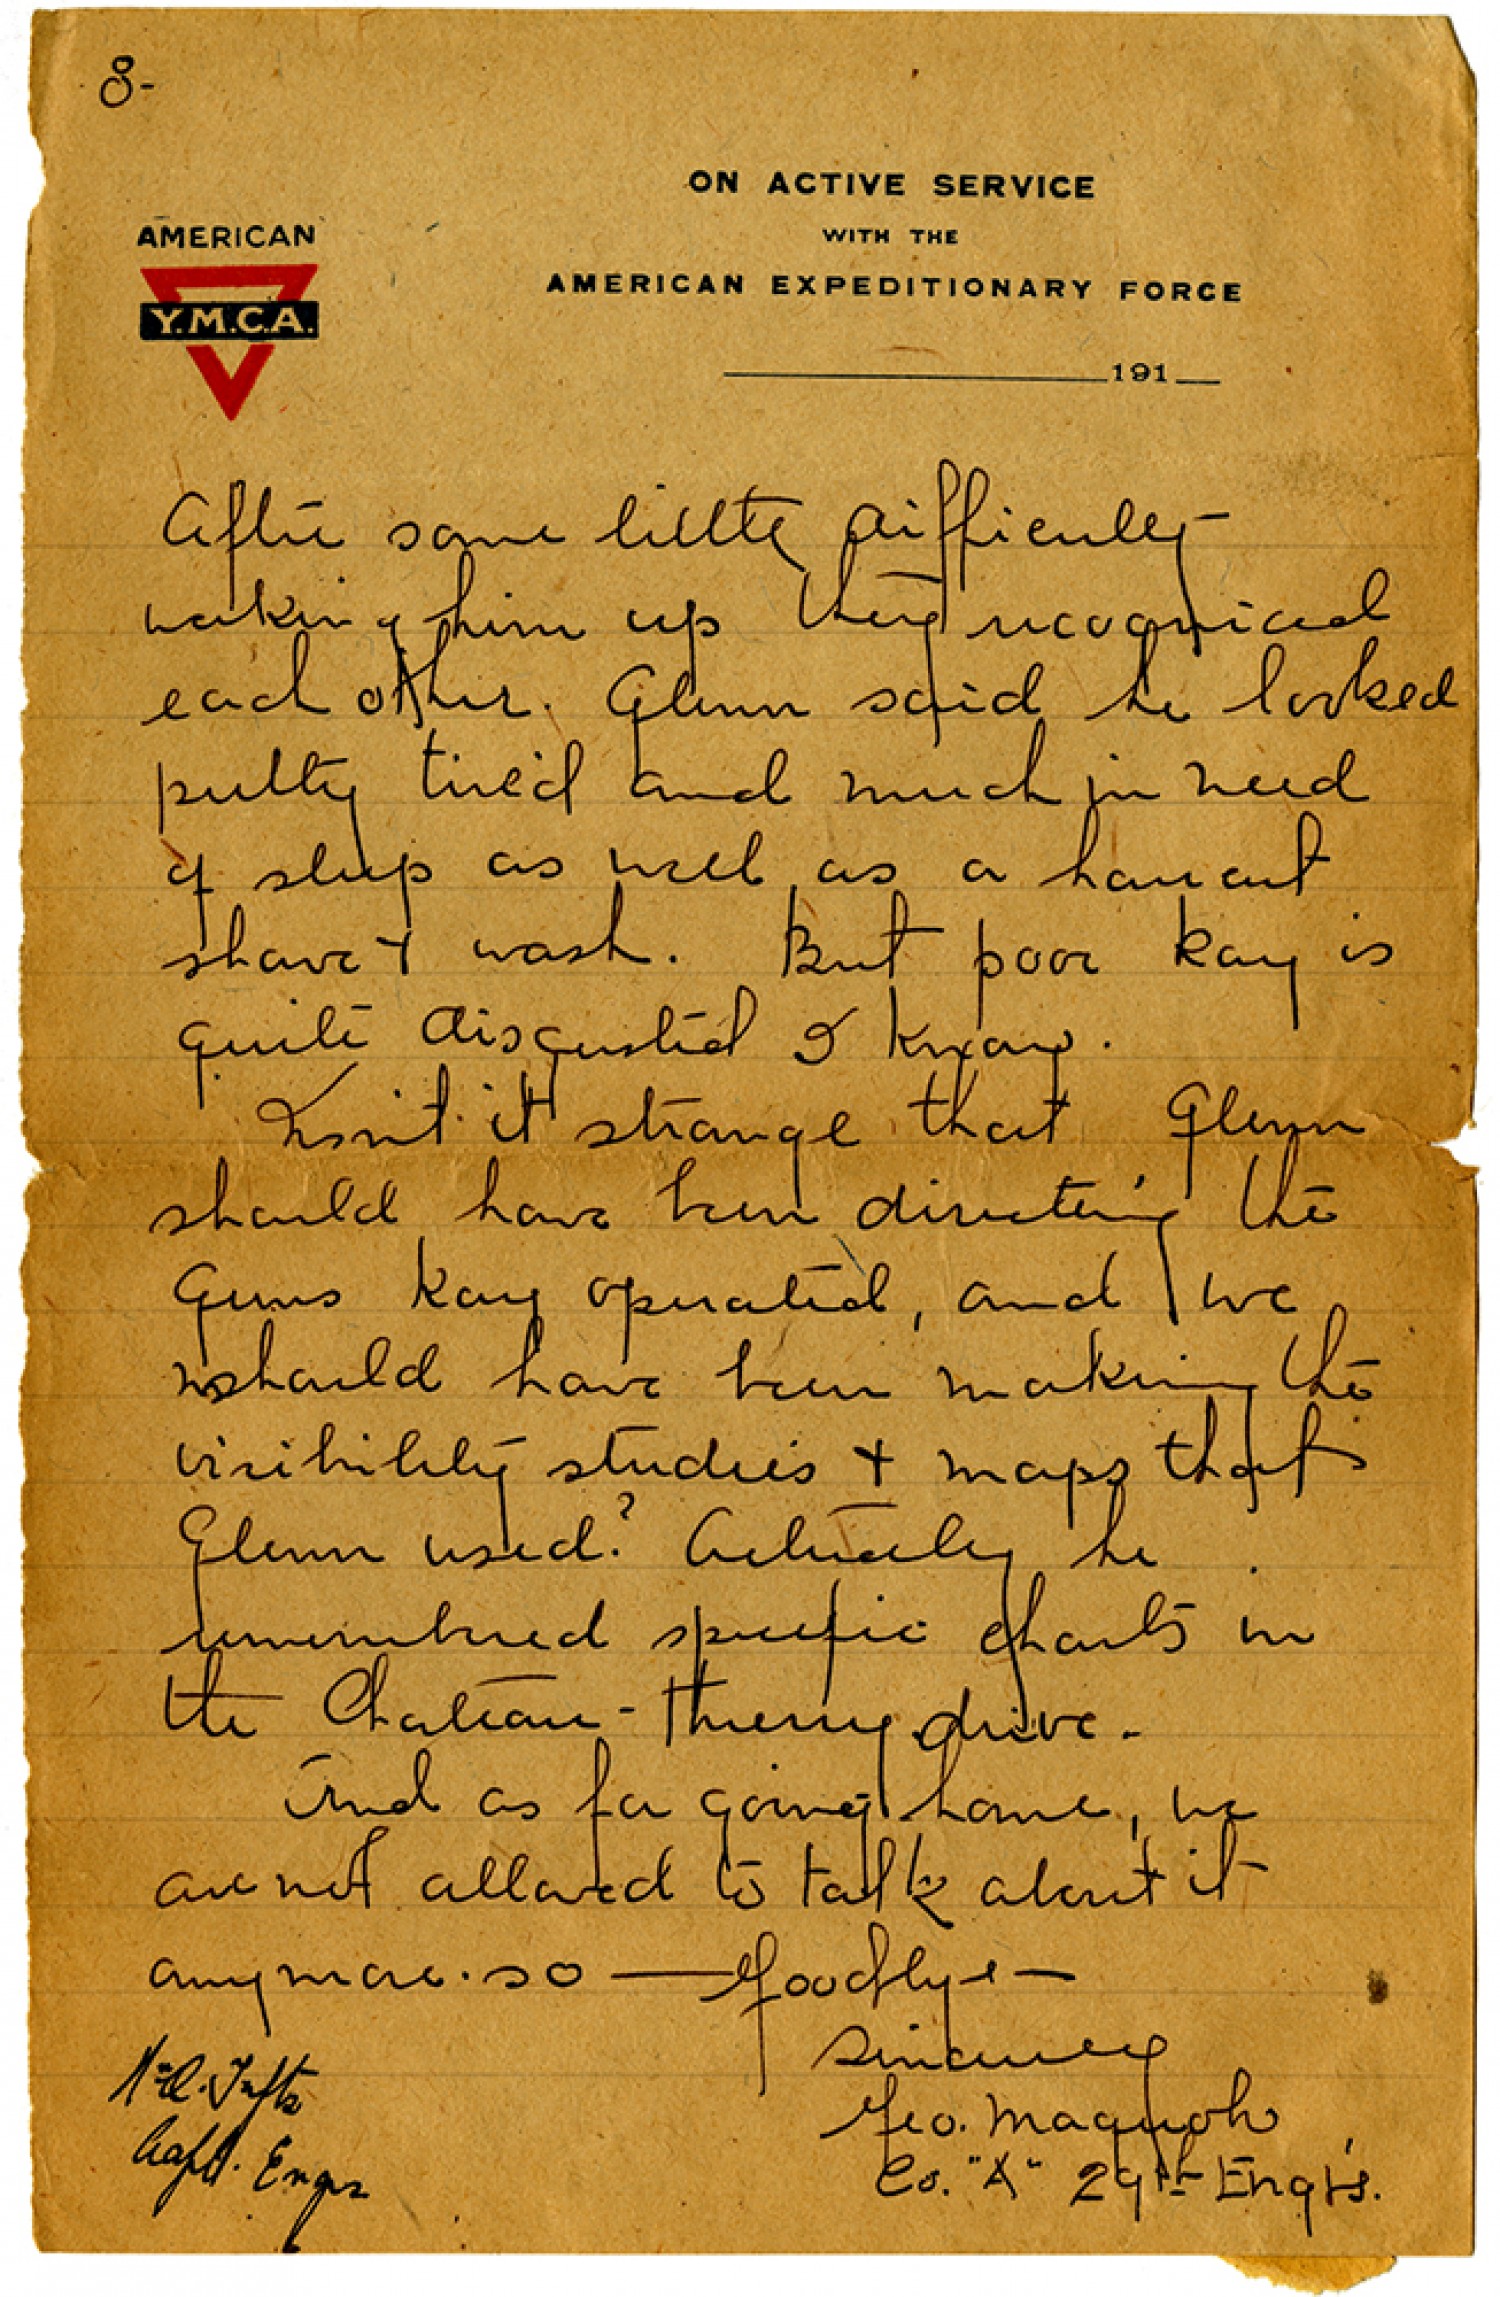 8-
ON ACTIVE SERVICE
WITH THE
AMERICAN EXPEDITIONARY FORCE
AMERICAN
Y.M.C.A.
191
After some little difficulty
waking him up they recognized
each other. Glenn said he looked
pretty tired and much in need
of sleep as well as a haircut
shave & wash. But poor Kay is
quite disgusted I know.
Isn't it strange that Glenn
should have been directing the
Guns Kay operated, and we
should have been making the
visibility studies & maps that
Glenn used? Actually he
remembered specific charts in
the Chateau-Thierry drive.
And as for going home, we
are not allowed to talk about it
anymore. so — Goodbye —
Sincerely
Geo.
Co. "A" 29th Engrs.
Tufts
Capt. Engrs